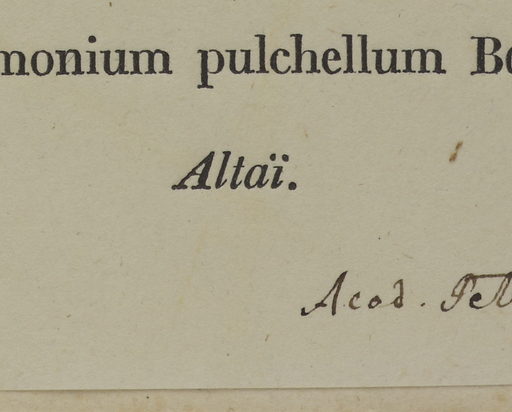 monium pulchellum Bo
Altaï.
Acad. Pet